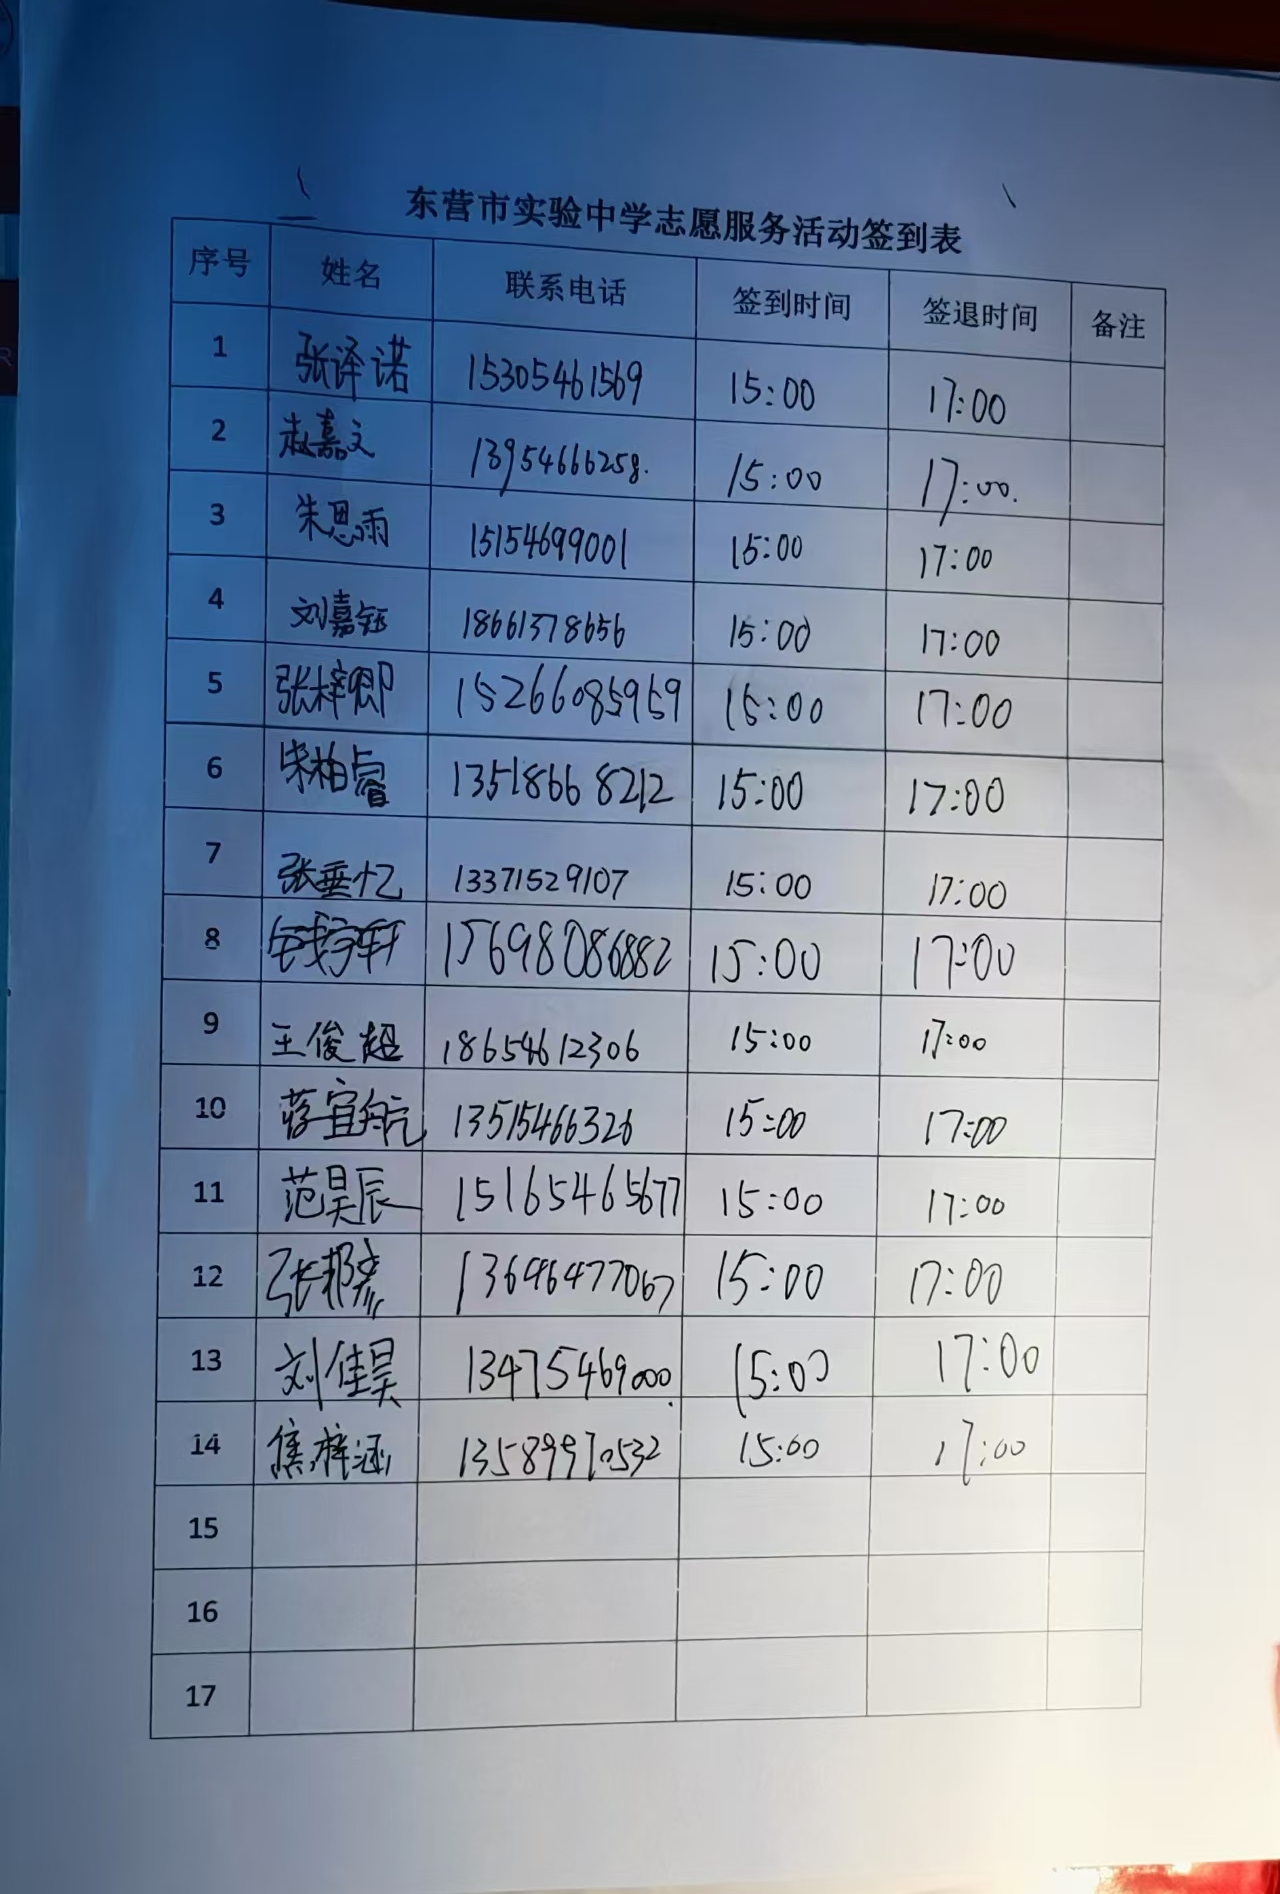 东营市实验中学志愿服务活动签到表
序号 姓名 联系电话 签到时间 签退时间 备注
1 张译诺 15305461569 15:00 17:00
2 赵嘉文 13954666258. 15:00 17:00.
3 朱思雨 15154699001 15:00 17:00
4 刘嘉钰 18661378656 15:00 17:00
5 张梓卿 15266085959 15:00 17:00
6 宋柏睿 13518668212 15:00 17:00
7 张垂忆 13371529107 15:00 17:00
8 钱宇轩 15698086882 15:00 17:00
9 王俊超 18654612306 15:00 17:00
10 蒋宜航 13515466326 15:00 17:00
11 范昊辰 15165465677 15:00 17:00
12 张邦彦 13696477067 15:00 17:00
13 刘佳昊 13475469000. 15:00 17:00
14 焦梓涵 13589970532 15:00 17:00
15
16
17